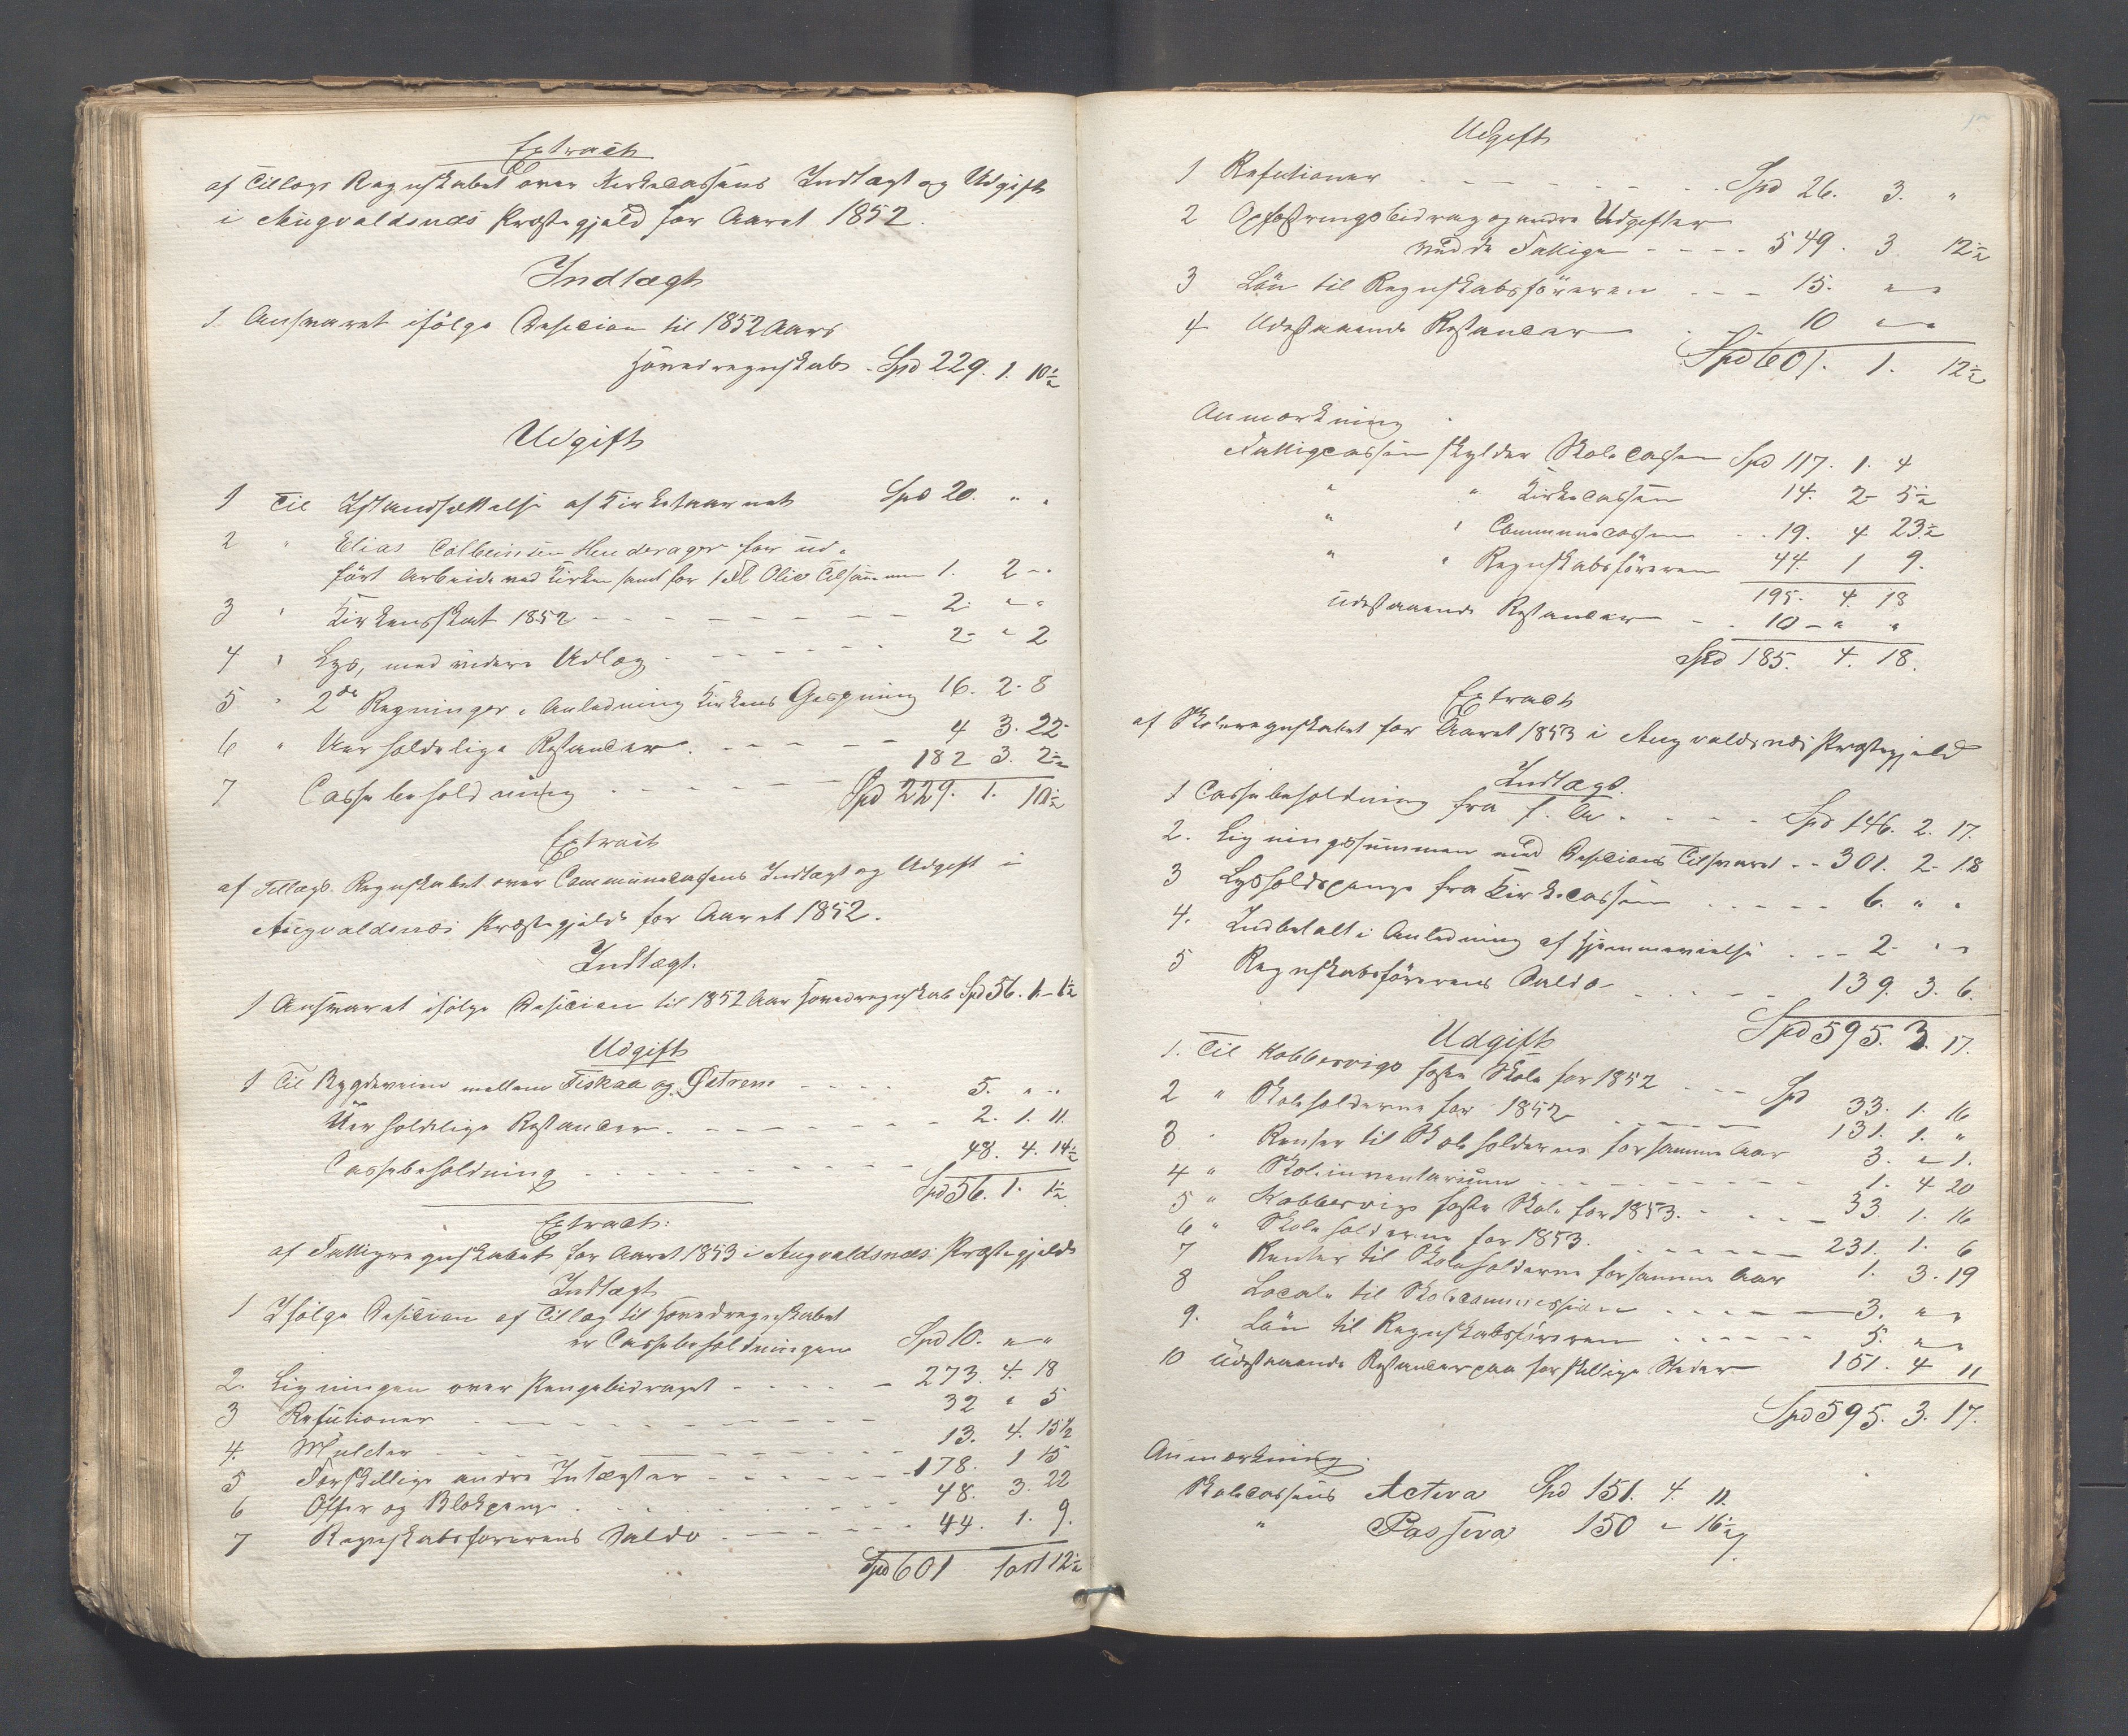 Extract
af Tillægs Regnskabet over Kirkecassens Indtægt og Udgift
i Augvaldsnæs Præstegjeld for Aaret 1852.
Indtægt
1. Ansvaret ifölge Decision til 1852 Aars
Hovedregnskab - Spd 229. 1. 10½
Udgift
1 Til Istandsættelse af Kirketaarnet Spd 20. " "
2 " Elias Henderager for ud-
fört Arbeide ved Kirken samt for 1 Olie Tilsammen 1. 2 - "
3 " Kirkeskat 1852 - - - 2. " "
4 " Lys, med videre Udlæg - - - 2 - " 2
5 " 2de Regninger i Anledning Kirkens 16. 2. 8
6 " Uerholdelige Restancer - - - 4 3. 22
7 Cassebeholdning - - - 182 3. 2½
Spd 229. 1. 10½
Extract
af Tillægs Regnskabet over Communecassens Indtægt og Udgift i
Augvaldsnæs Præstegjeld for Aaret 1852.
Indtægt.
1 Ansvaret ifölge Decision til 1852 Aars Hovedregnskab Spd 56. 1 - 1½
Udgift
1 Til Bygdeveien mellem Fiskaa og Østrem - - - 5. " "
Uerholdelige Restancer - - - 2. 1. 11.
Cassebeholdning - - - 48. 4. 14½
Spd 56. 1. 1½
Extract:
af Fattigregnskabet for Aaret 1853 i Augvaldsnæs Præstegjeld
Indtægt
1 Ifölge Decision af Tillæg til Hovedregnskabet
er Cassebeholdningen Spd 10. " "
2. Ligningen over Pengebidraget - - - 273. 4. 18
3 Refutioner - - - 32 " 5
4. Mulcter - - - 13. 4. 15½
5 Forskjellige andre Intægter - - - 178. 1 15
6 Offer og Blokpenge - - - 48. 3. 22
7 Regnskabsförerens Saldo - - - 44. 1. 9.
Spd 601 1 12½
Udgift
1 Refutioner - - - Spd 26. 3. "
2 Opfostringsbidrag og andre Udgifter
ved de Fattige - - - 549. 3 12½
3 Lön til Regnskabsföreren - - - 15. " "
4 Udestaaende Restancer - - - 10 " "
Spd 601. 1. 12½
Anmærkning
Fattigcassen skylder Skolecassen Spd 117. 1. 4
" " Kirkecassen 14. 2 - 5½
" " Communecassen - - 19. 4 23½
" " Regnskabsföreren 44. 1 9.
195. 4. 18
Udestaaende Restancer - - 10 - " "
Spd 185. 4. 18.
Extract
af Skoleregnskabet for Aaret 1853 i Augvaldsnæs Præstegjeld
Indtægt.
1 Cassebeholdning fra f. Aar - - - Spd 146. 2. 17.
2. Ligningssummen med Decisions Tilsvaret - - 301. 2 - 18
3 Lysholdspenge fra Kirkecassen - - - 6. " "
4. Indbetalt i Anledning af Hjemmevielse - - - 2 - " "
5 Regnskabsförerens Saldo - - - 139. 3. 6.
Spd 595. 3. 17.
Udgift
1. Til Kobbervigs faste Skole for 1852 - - - Spd 33. 1. 16
2 " Skoleholderne for 1852 - - - 131. 1. "
3 " Renter til Skoleholderne for samme Aar 3. " 1.
4 " Skoleinventarium - - - 1. 4 20
5 " Kobbervigs faste Skole for 1853. - - - 33 1. 16
6 " Skoleholderne for 1853. - - - 231. 1. 6
7 Renter til Skoleholderne for samme Aar 1. 3. 19
8 Locale til Skolecommission - - - 3. " "
9. Lön til Regnskabsföreren - - - 5. " "
10 Udestaaende Restancer paa forskjellige Steder 151. 4 11
Spd 595. 3. 17.
Anmærkning.
Skolecassens Activa Spd 151. 4. 11.
" Passiva 150 " 16½